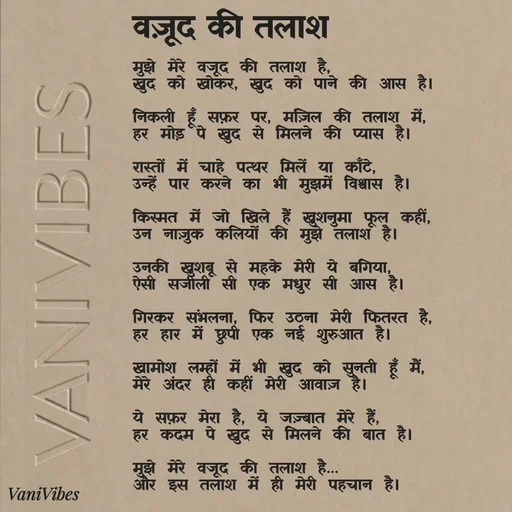 वज़ूद की तलाश
मुझे मेरे वजूद की तलाश है,
खुद को खोकर, खुद को पाने की आस है।
निकली हूँ सफ़र पर, मंज़िल की तलाश में,
हर मोड़ पे खुद से मिलने की प्यास है।
रास्तों में चाहे पत्थर मिलें या काँटे,
उन्हें पार करने का भी मुझमें विश्वास है।
किस्मत में जो खिले हैं खुशनुमा फूल कहीं,
उन नाज़ुक कलियों की मुझे तलाश है।
उनकी खुशबू से महके मेरी ये बगिया,
ऐसी सजीली सी एक मधुर सी आस है।
गिरकर संभलना, फिर उठना मेरी फितरत है,
हर हार में छुपी एक नई शुरुआत है।
खामोश लम्हों में भी खुद को सुनती हूँ मैं,
मेरे अंदर ही कहीं मेरी आवाज़ है।
ये सफ़र मेरा है, ये जज़्बात मेरे हैं,
हर कदम पे खुद से मिलने की बात है।
मुझे मेरे वजूद की तलाश है...
और इस तलाश में ही मेरी पहचान है।
VANIVIBES
VaniVibes